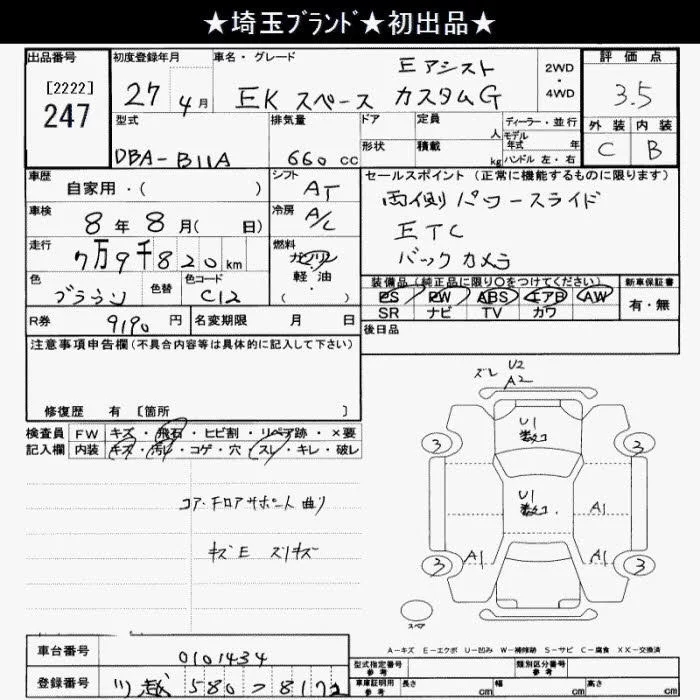 ★埼玉ﾌﾞﾗﾝﾄﾞ★初出品★
出品番号 初度登録年月 車名・グレード 2WD・4WD 評価点
[2222]
247
27 4月 EK スペース Eアシスト カスタムG 3.5
型式 排気量 ドア 定員 人 ディーラー・並行 外装 内装
形状 積載 kg モデル年式 年 ハンドル 左・右
DBA-B11A 660cc C B
車歴 自家用・( ) シフト AT
セールスポイント (正常に機能するものに限ります)
両側パワースライド
ETC
バックカメラ
車検 8年8月( 日) 冷房 A/C
走行 7万9千820km 燃料 ガソリン 軽・油 ( )
色 ブラウン 色替 色コード C12
装備品(純正品に限り○をつけてください) 新車保証書
PS PW ABS エアB AW 有・無
SR ナビ TV カワ
R券 9190円 名変期限 月 日
後日品
注意事項申告欄(不具合内容等は具体的に記入して下さい)
修復歴 有 [箇所 ]
検査員 FW キズ・飛石・ヒビ割・リペア跡・×要
記入欄 内装 キズ・汚レ・コゲ・穴・スレ・キレ・破レ
コア・フロアサポート曲り
キズE スリキズ
ズレ U2
A2
U1
3 3
U1
A1
A1 A1
3 3
スペア
A-キズ E-エクボ U-凹み W-補修跡 S-サビ C-腐食 XX-交換済
車台番号 0101434
型式指定番号 参考 類別区分番号 参考
登録番号 580 8172
車庫証明用 参考 長さ cm 幅 cm 高さ cm